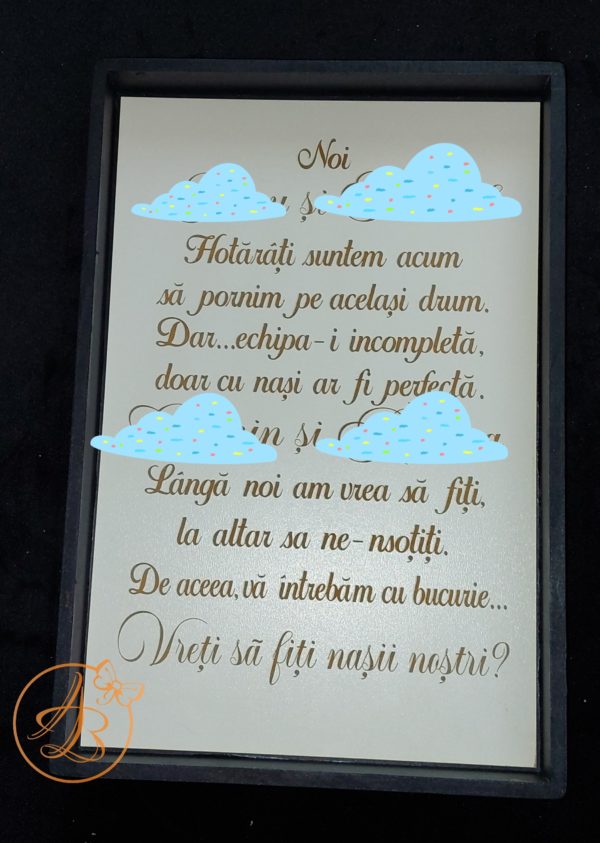 Noi
și
Hotărâți suntem acum
să pornim pe același drum.
Dar...echipa-i incompletă,
doar cu nași ar fi perfectă.
și
Lângă noi am vrea să fiți,
la altar sa ne-nsoțiți.
De aceea,vă întrebăm cu bucurie...
Vreți să fiți nașii noștri?
AB